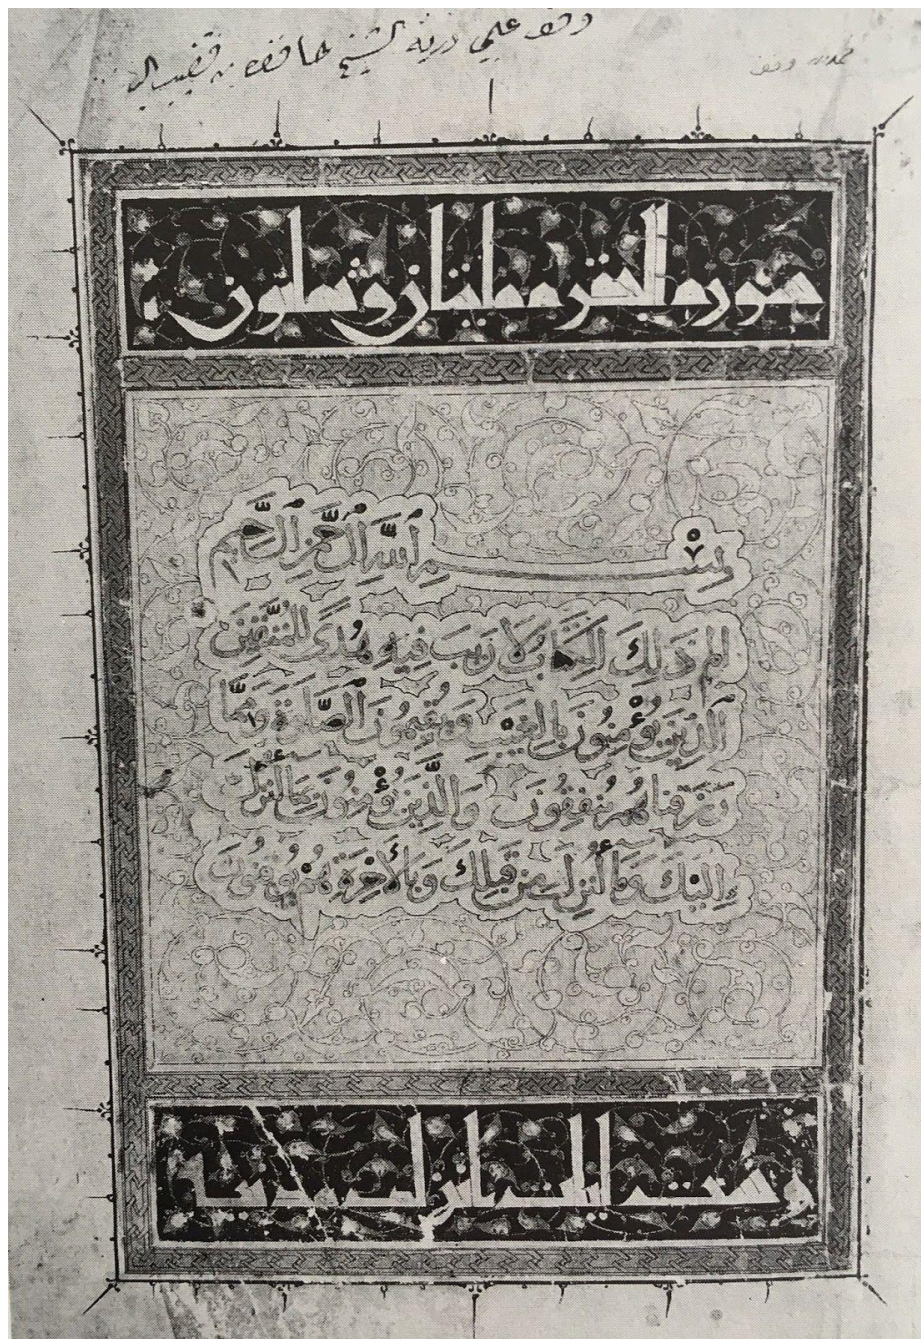 وقف علي ذرية الشيخ حافظ بن قضيب البان
وقف
سورة البقرة مائتان وثمانون
بِسْمِ اللَّهِ الرَّحْمَنِ الرَّحِيمِ
الم ذَلِكَ الْكِتَابُ لَا رَيْبَ فِيهِ هُدًى لِلْمُتَّقِينَ
الَّذِينَ يُؤْمِنُونَ بِالْغَيْبِ وَيُقِيمُونَ الصَّلَوةَ وَمِمَّا
رَزَقْنَاهُمْ يُنْفِقُونَ وَالَّذِينَ يُؤْمِنُونَ بِمَا أُنْزِلَ
إِلَيْكَ وَمَا أُنْزِلَ مِنْ قَبْلِكَ وَبِالْآخِرَةِ هُمْ يُوقِنُونَ